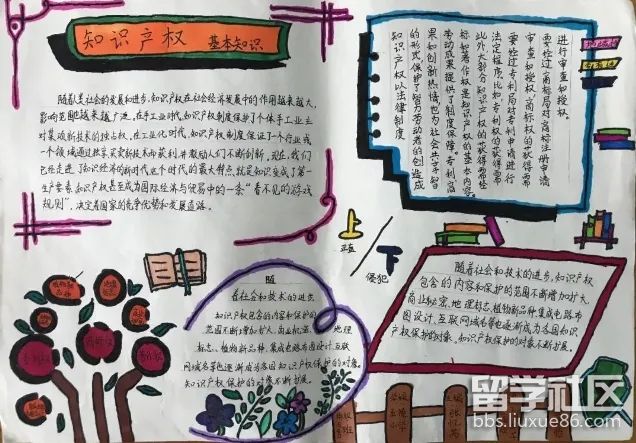 知识产权 基本知识
随着人类社会的发展和进步,知识产权在社会经济发展中的作用越来越大,
影响范围也越来越广泛,在手工业时代,知识产权制度保护了个体手工业主
对某项新技术的独占权,在工业化时代,知识产权制度保证了一个行业或
一个领域通过独家买卖新技术而获利,并激励人们不断创新,现在,我们
已经走进了知识经济的新时代,这个时代的最大特点就是知识变成了第一
生产要素,知识产权甚至成为国际经济与贸易中的一条“看不见的游戏
规则”,决定着国家的竞争优势和发展道路。
知识产权以法律制度
的形式保护了智力劳动者的创造成
果和创新热情,也为社会共享智
劳动成果提供了制度保障。专利商
标和著作权是知识产权的基本内容。
此外,大部分知识产权的获得需经
法定程序,比如专利权的获得需
要经过专利局对专利申请进行
审查和授权,商标权的获得需
要经过商标局对商标注册申请
进行审查和授权。
上
正直
下
侵犯
随
着社会和技术的进步,
知识产权包含的内容和保护的
范围不断增加扩大,商业秘密、地理
标志、植物新品种、集成电路布图设计、互联
网域名等也逐渐成为各国知识产权保护的对象。
知识产权保护的对象不断扩展。
随着社会和技术的进步,知识产权
包含的内容和保护的范围不断增加扩大,
商业秘密、地理标志、植物新品种、集成电路布
图设计、互联网域名等也逐渐成为各国知识
产权保护的对象,知识产权保护的对象不断扩展。
专利权
商标权
著作权
留学社区
bbs.liuxue86.com